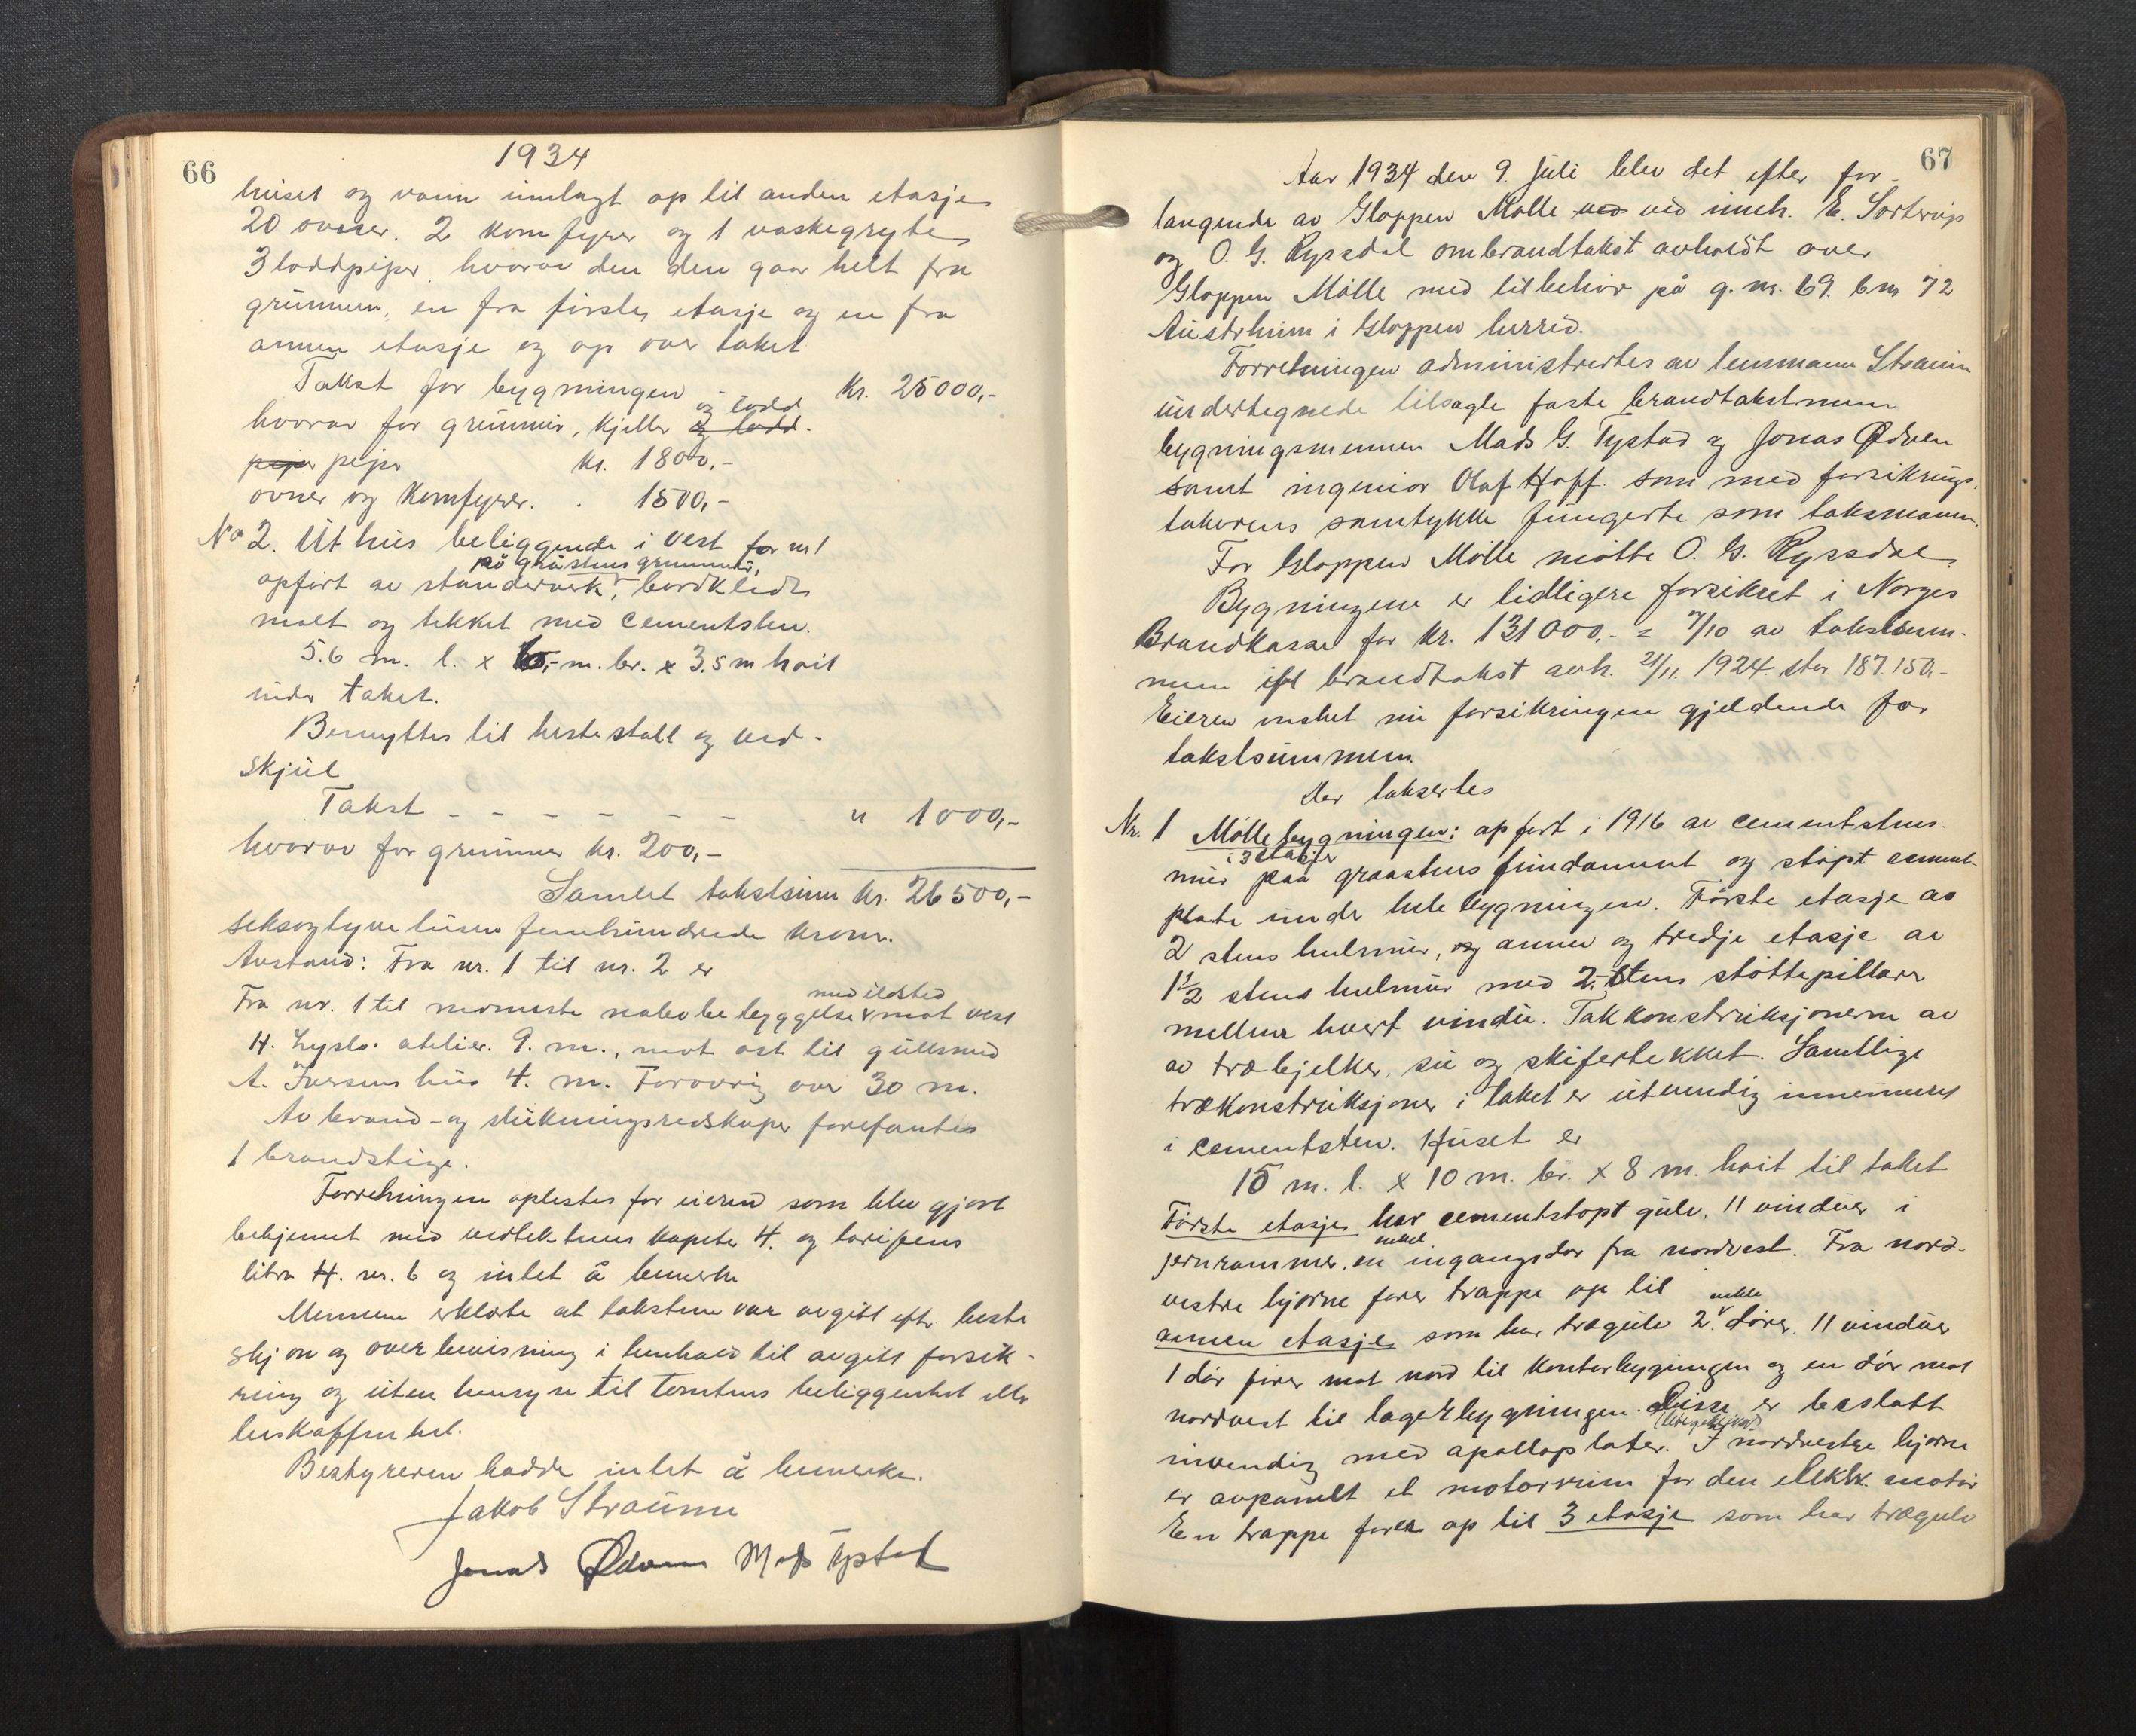 66
1934
huset og vann innlagt op til anden etasje
20 ovner. 2 komfyrer og 1 vaskegryte
3 loddpiper hvorav den den gaar helt fra
grunnen, en fra første etasje og en fra
annen etasje og op over taket
Takst for bygningen - kr. 25000,-
og lodd
hvorav for grunnmur, kjeller og lodd-
piper piper kr. 1800,-
ovner og komfyrer. . 1500,-
No 2. Uthus beliggende i vest for nr 1
på gråstens grunnmur,
opført av stenderverk, bordkledt
malt og tekket med cementsten.
5.6 m. l. x m. br. x 3.5 m høit
under taket.
Benyttes til hestestall og ved-
skjul
Takst - - - - - - - " 1000,-
hvorav for grunnmur kr. 200,-
Samlet takstsum kr. 26500,-
seksogtyve tusen femhundrede kroner.
Avstand: Fra nr. 1 til nr. 2 er
med ildsted
Fra nr. 1 til nærmeste nabobebyggelse mot vest
H. atelier. 9. m., mot øst til gullsmed
A. Iversens hus 4. m. Forøvrig over 30 m.
Av brand- og slukningsredskaper forefantes
1 brandstige.
Forretningen oplestes for eieren som blev gjort
bekjennt med vedtektenes kapitel 4. og tarifens
litra H. nr. 6 og intet å bemerke
Mennene erklærte at taksten var avgitt efter beste
skjøn og overbevisning i henhold til avgitt forsik-
ring og uten hensyn til tomtens beliggenhet eller
beskaffenhet.
Bestyreren hadde intet å bemerke.
Jakob Straume
Jonas Ødven Mads Tystad
67
Aar 1934 den 9. juli blev det efter for-
langende av Gloppen Mølle ved ved inneh. E. Sørterup
og O. G. Ryssdal ombrandtakst avholdt over
Gloppen Mølle med tilbehør på g.nr. 69. bnr 72
Austrheim i Gloppen herred.
Forretningen administrertes av lensmann Straume
undertegnede tilsagte faste brandtakstmenn
bygningsmennene Mads G. Tystad og Jonas Ødven
samt ingeniør Olaf Hoff. som med forsikrings-
takerens samtykke fungerte som taksmann.
For Gloppen Mølle møtte O. G. Ryssdal
Bygningene er tidligere forsikret i Norges
Brandkasse for kr. 131000.- = 7/10 av takstsum-
men ifl brandtakst avh. 21/11. 1924. stor 187.150,-
Eieren ønsket nu forsikringen gjeldende for
takstsummen.
Der taksertes
Nr. 1 Møllebygningen: opført i 1916 av cementstens-
i 3 etasjer
mur paa graastens fundament og støpt cement-
plate under hele bygningen. Første etasje av
2 stens hulmur, og annen og tredje etasje av
1 1/2 stens hulmur med 2. stens støttepillarer
mellem hvert vindu. Takkonstruksjonerne av
av træbjelker, su og skifertekket. Samtlige
trækonstruksjoner i taket er utvendig innmuret
i cementsten. Huset er
15 m. l. x 10 m. br. x 8 m. høit til taket
Første etasje har cementstøpt gulv. 11 vinduer i
enkel
jernrammer, en ingangsdør fra nordvest. Fra nord-
vestre hjørne fører trappe op til
enkle
annen etasje som har trægulv 2. dører. 11 vinduer
1 dør fører mot nord til kontorbygningen og en dør mot
nordvest til lagerbygningen. Disse er beslått
invendig med apolloplater. I nordvestre hjørne
er avpanelt et motorrum for den elektr. motor
En trappe fører op til 3 etasje som har trægulv